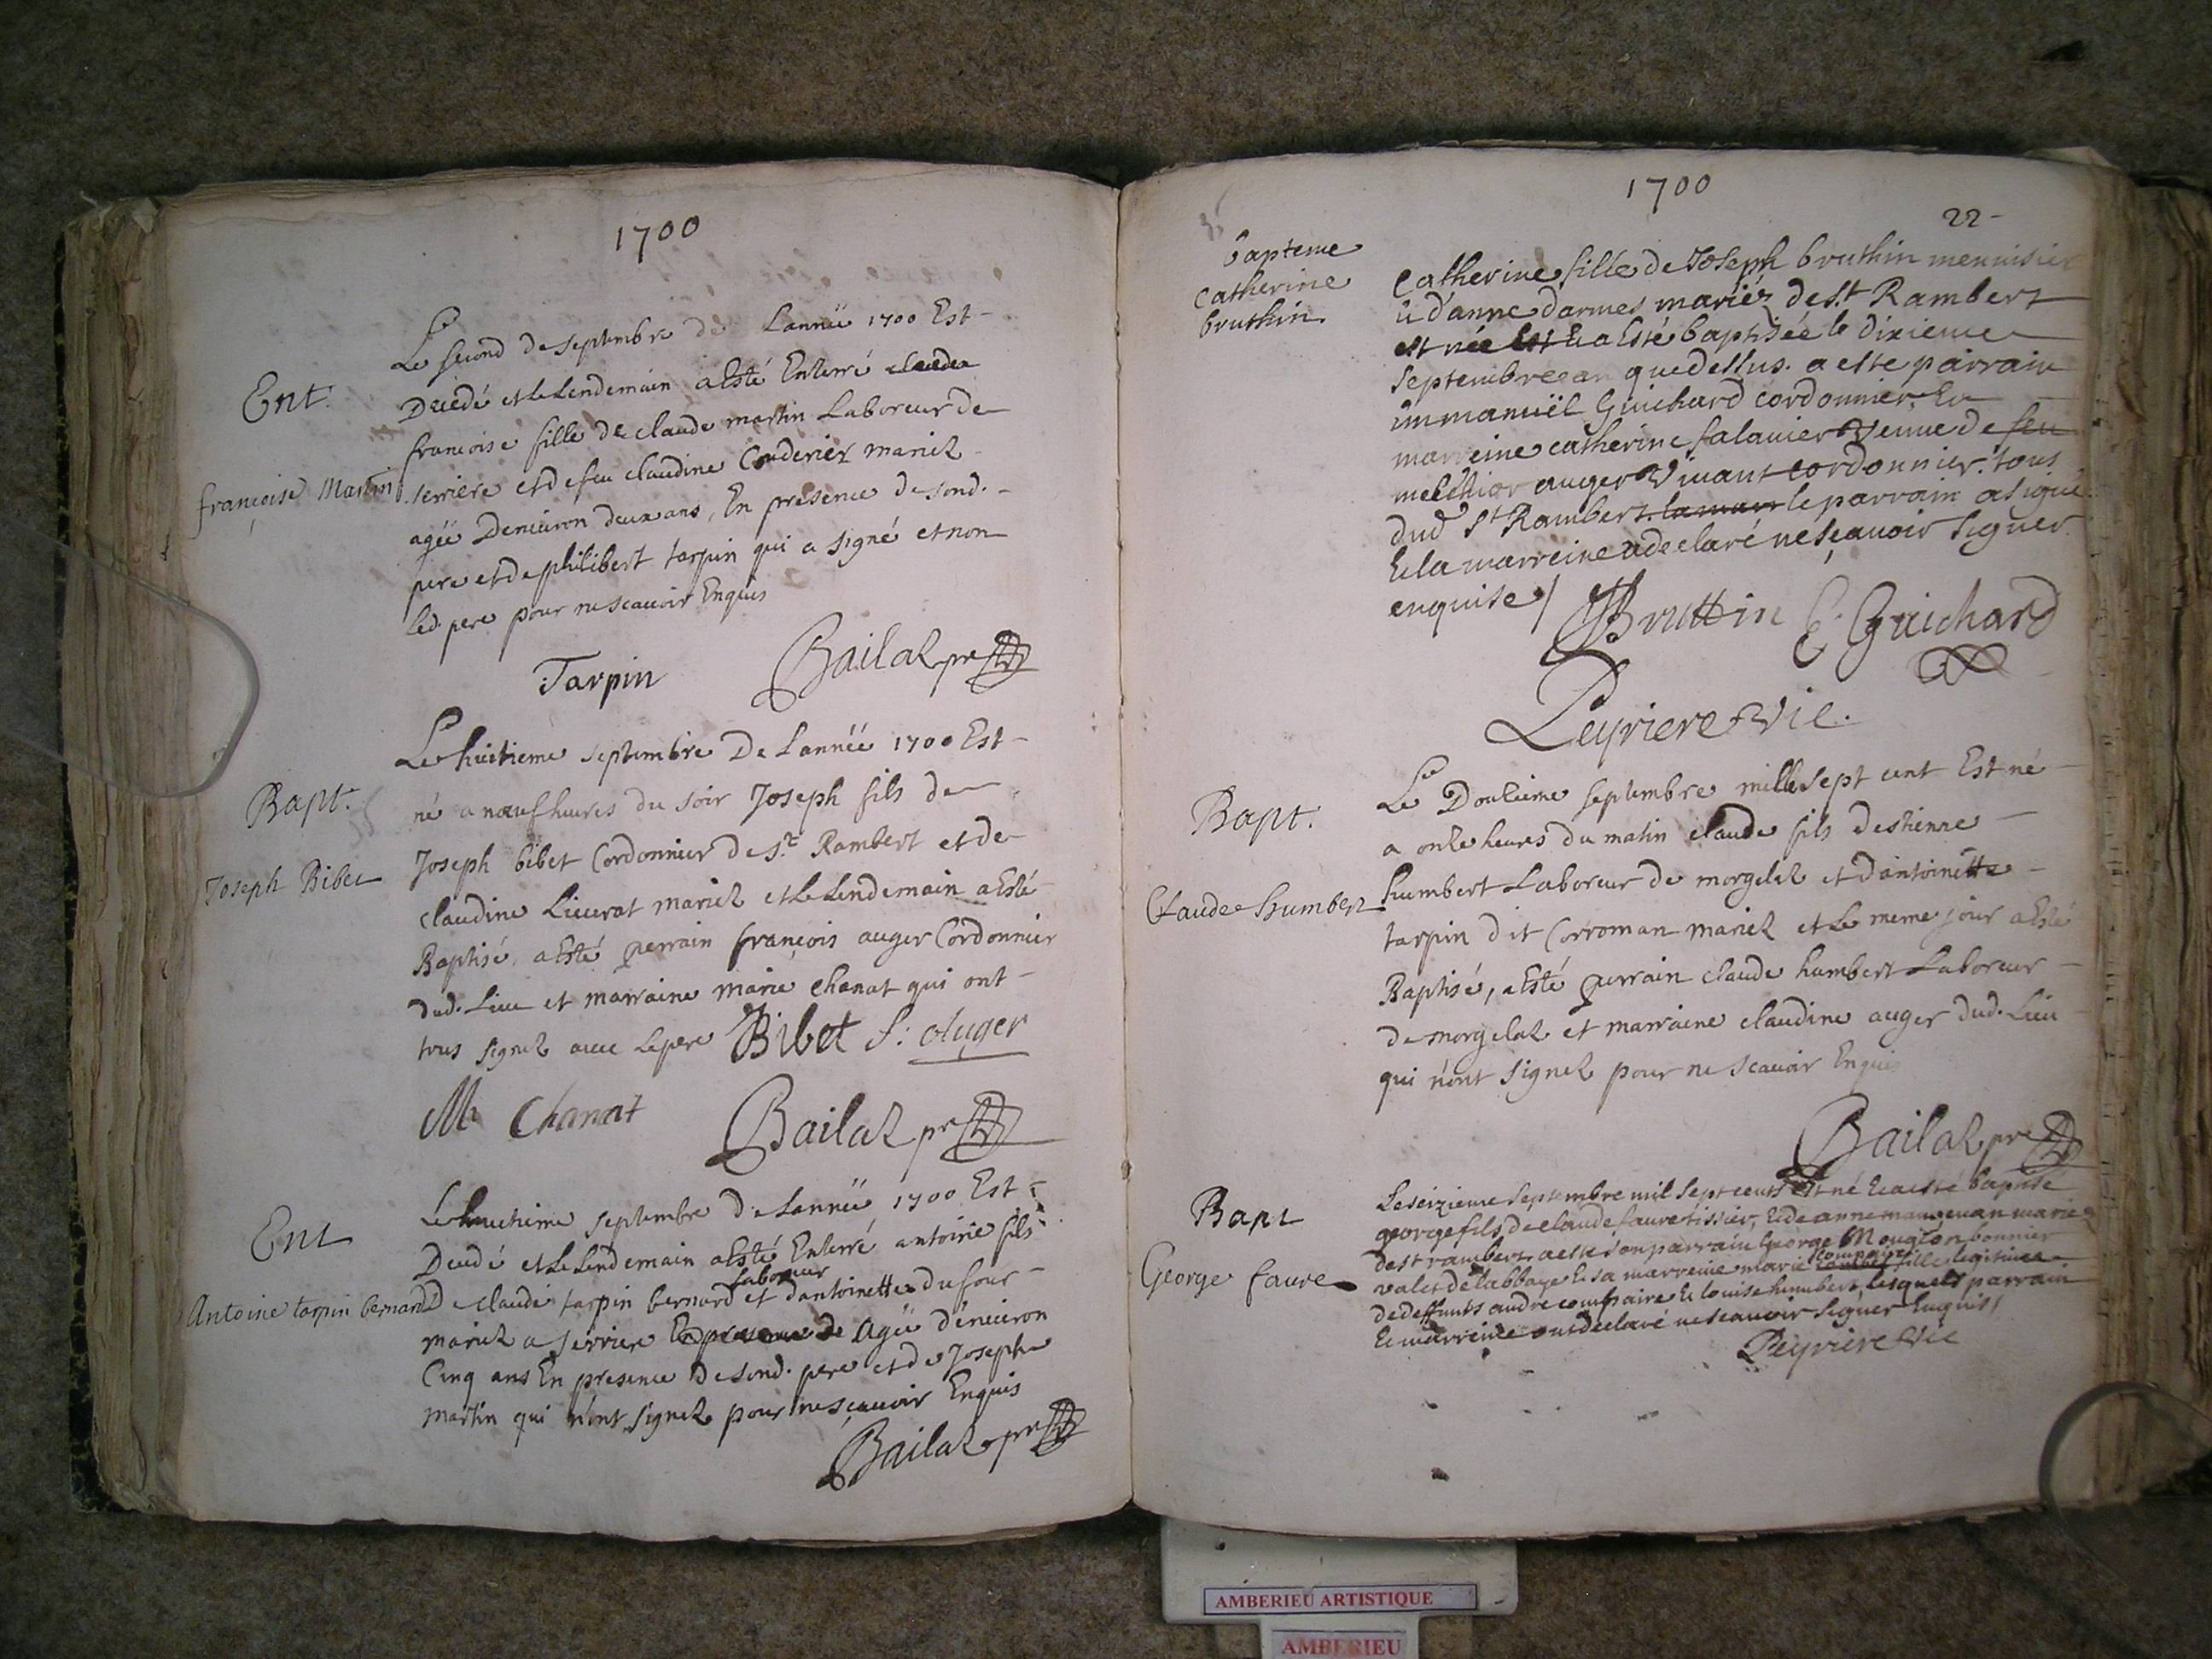 1700
Ent.
françoise Martin
Le second de septembre de Lannëe 1700 Est
Decedé et le Lendemain a Esté Enterré
francoise fille de claude martin Laboreur de
serriere et de feu claudine Couderier mariez
agëe Denuiron deux ans, En presence de sond.
pere et de philibert tarpin qui a signé et non
led. pere pour ne scauoir Enquis
Tarpin Bailaz pre
Bapt.
Joseph Bibet
Le huitieme septembre De Lannëe 1700 Est
né a neuf heures du soir Joseph fils de
Joseph bibet Cordonnier de st Rambert et de
claudine Lieurat mariez et le Lendemain a Esté
Baptisé, a Esté perrain françois auger Cordonnier
dud. Lieu et marraine marie chanat qui ont
tous signez auec le pere Bibet f: auger
M Chanat Bailaz pre
Ent
Antoine tarpin bernard
Le septembre de Lannëe 1700 Est
Decedé et le Lendemain a Esté Enterré antoine fils
laboreur
De claude tarpin bernard et dantoinette dufour
mariez a serriere En presence de Agëe dénuiron
Cinq ans En presence De sond. pere et de Joseph
martin qui n'ont signez pour ne sçauoir Enquis
Bailaz pre
1700
22
bapteme
catherine
bruthin
catherine fille de Joseph bruthin menuisier
danne darmes mariéz de St Rambert
est née Est & a Esté baptisée le dixieme
septembre an que dessus. a este parrain
immanuël Guichard cordonnier, Et
marreine catherine falauier veuue de feu
melchior auger viuant cordonnier. tous
dud St Rambert. la marr le parrain a signé
Et la marreine a declaré ne sçauoir signer
enquise /
Bruttin E. Guichard
Peyriere vic.
Bapt.
Claude humbert
Le Douzieme septembre mille sept cent Est né
a onze heures du matin claude fils destienne
humbert Laboreur de morgelaz et Dantoinette
tarpin dit Corroman mariez et Le meme jour a Esté
Baptisé, a Esté perrain claude humbert Laboreur
de morgelaz et marraine claudine auger dud. Lieu
qui n'ont signez pour ne scauoir Enquis
Bailaz pre
Bapt
George faure
Le seizieme Septembre mil Sept cents est né & a esté baptisé
george fils de claude faure tissier, & de anne mariez
de st rambert a esté son parrain George Mouglon bonnier
compaire
valet de labbaye & sa marreine marie fille legitime
de deffunts andre compaire & louise humbert, lesquels parrain
& marreine ont declaré ne scauoir signer Enquis /
Peyriere vic
AMBERIEU ARTISTIQUE
AMBERIEU